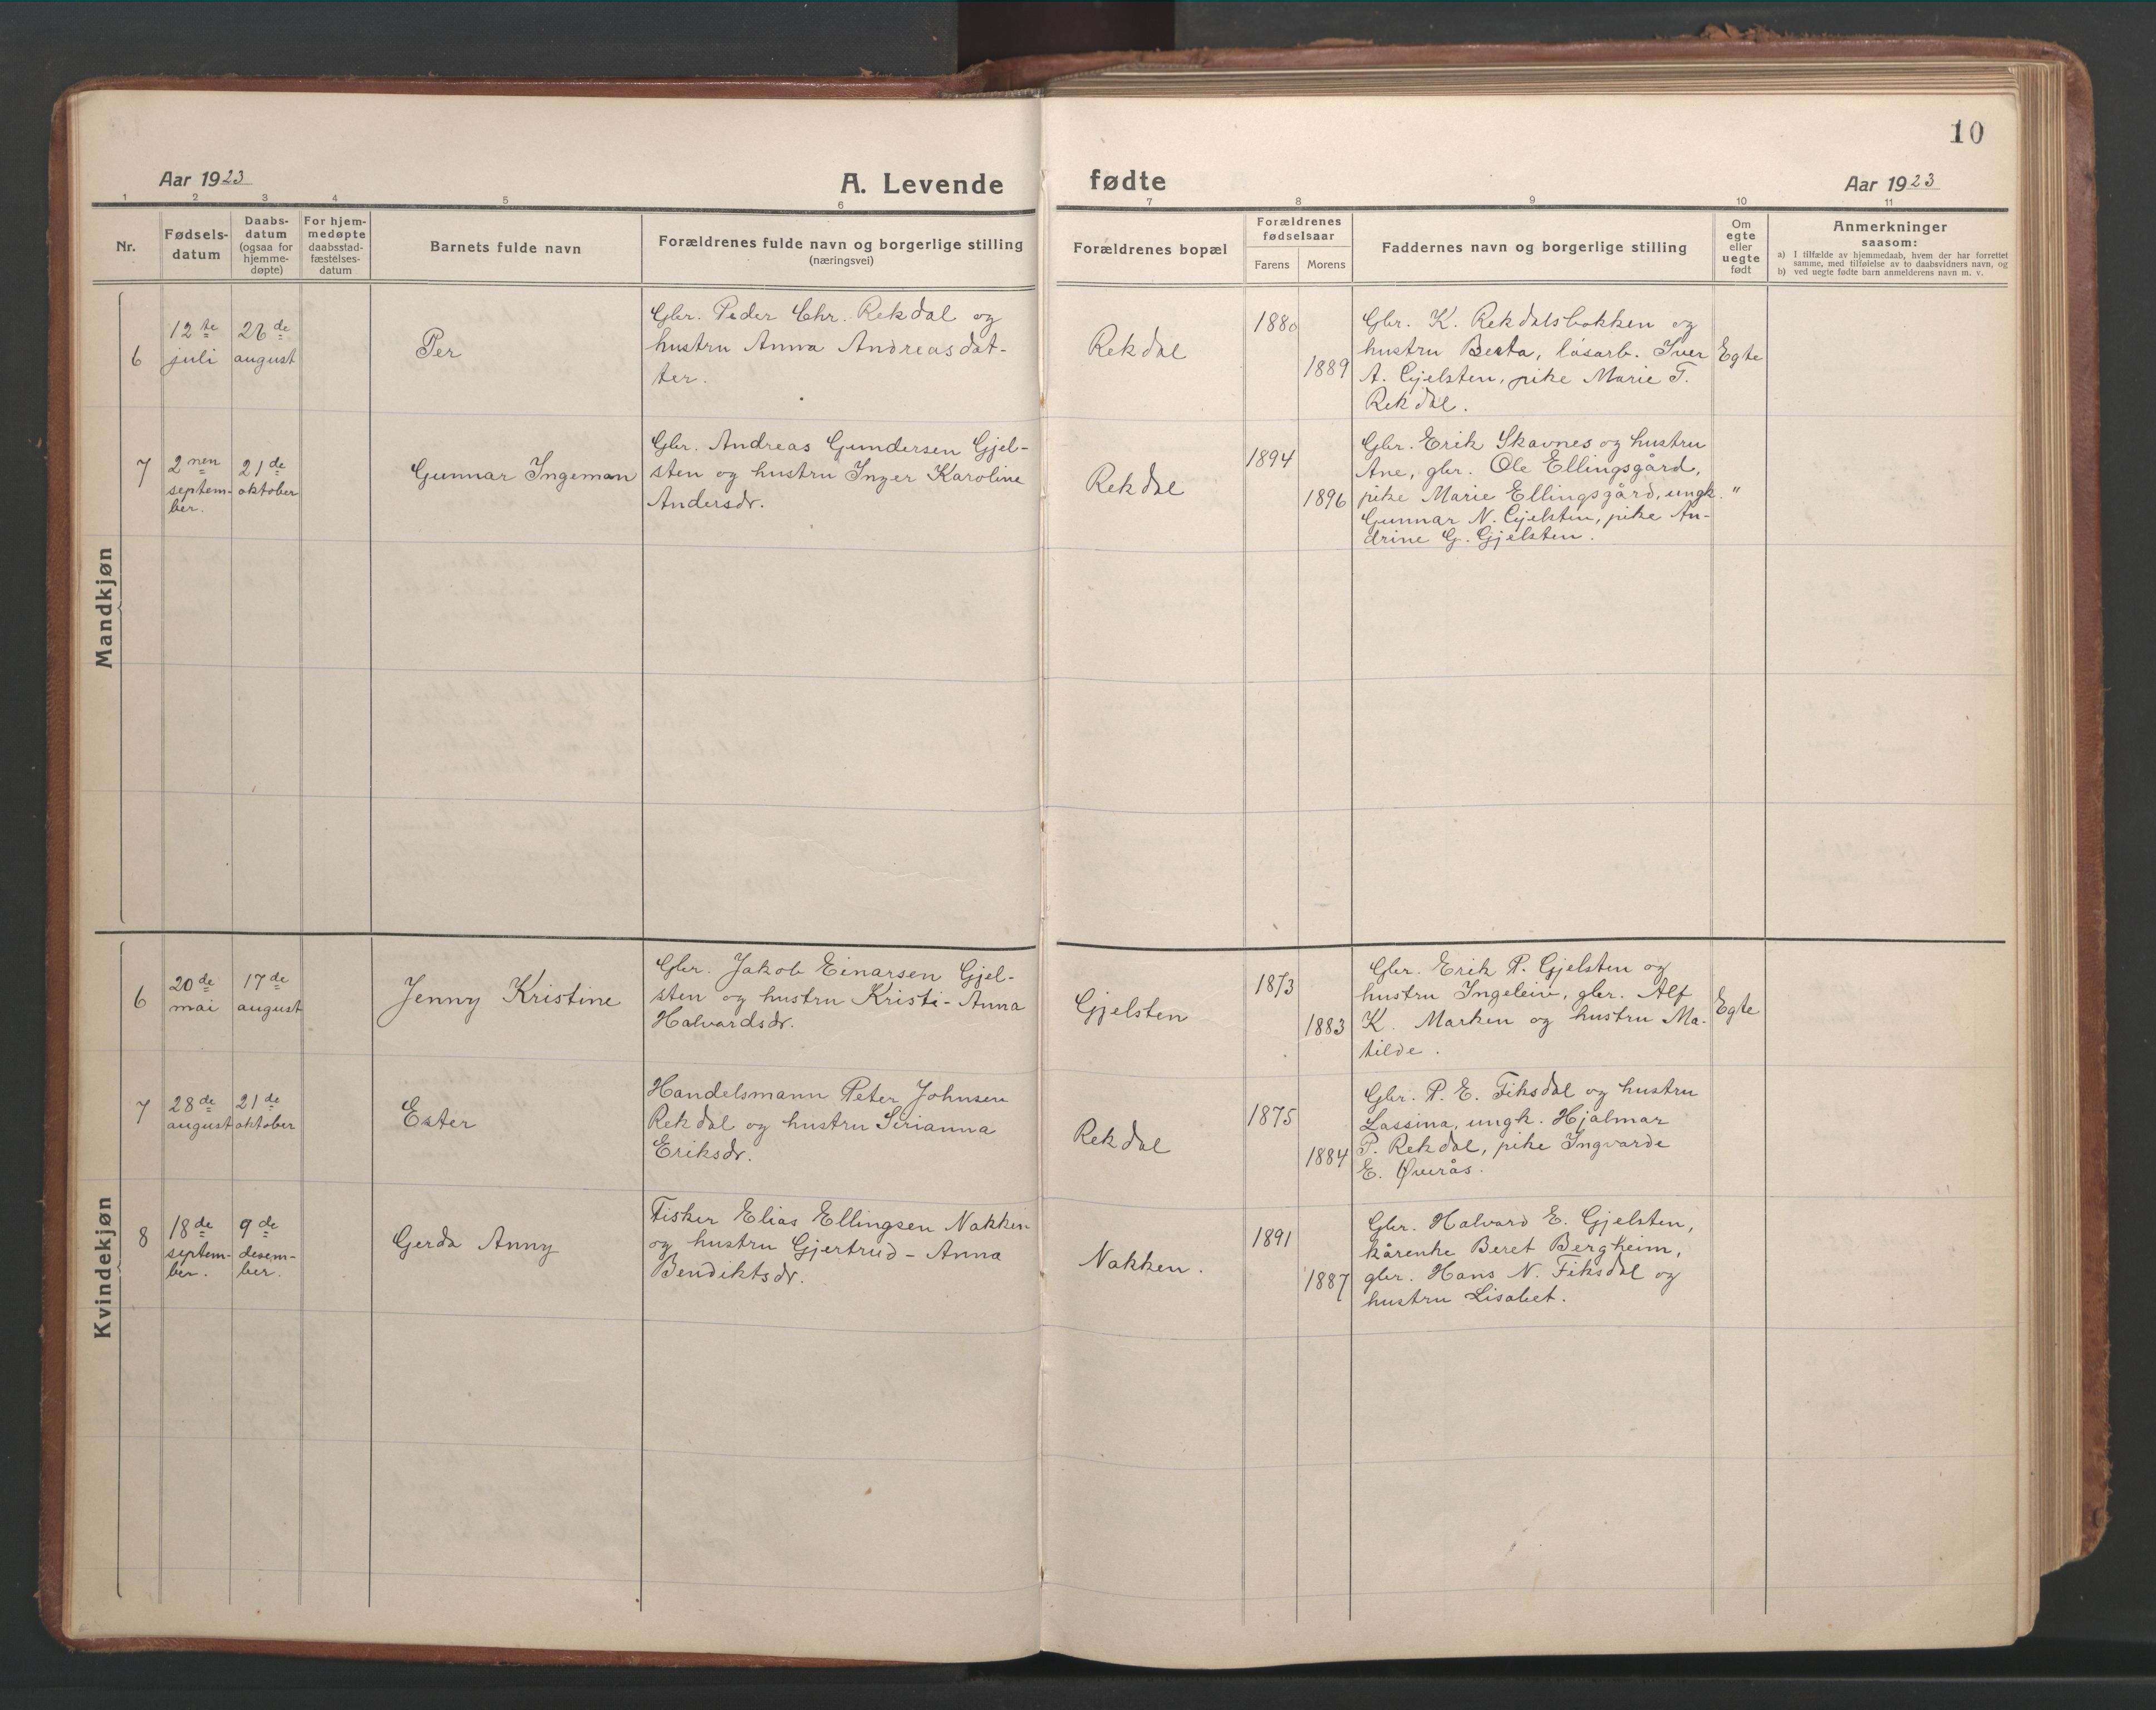 10
Aar 1923
A. Levende fødte
Aar 1923
1 2 3 4 5 6 7 8 9 10 11
Nr.
Fødsels-
datum
Daabs-
datum
(ogsaa for
hjemme-
døpte)
For hjem-
medøpte
daabsstad-
fæstelses-
datum
Barnets fulde navn
Forældrenes fulde navn og borgerlige stilling
(næringsvei)
Forældrenes bopæl
Forældrenes
fødselsaar
Farens Morens
Faddernes navn og borgerlige stilling
Om
egte
eller
uegte
født
Anmerkninger
saasom:
a) I tilfælde av hjemmedaab, hvem der har forrettet
samme, med tilføielse av to daabsvidners navn, og
b) ved uegte fødte barn anmelderens navn m. v.
Mandkjøn
6
12te
juli
26de
august
Per
Gbr. Peder Chr. Rekdal og
hustru Anna Andreasdat-
ter.
Rekdal
1880
1889
Gbr. K. Rekdalsbakken og
hustru Berta, løsarb. Iver
A. Gjelsten, pike Marie T.
Rekdal.
Egte
7
2nen
septem-
ber.
21de
oktober
Gunnar Ingeman
Gbr. Andreas Gundersen Gjel-
sten og hustru Inger Karoline
Andersdr.
Rekdal
1894
1896
Gbr. Erik Skavnes og hustru
Ane, gbr. Ole Ellingsgård,
pike Marie Ellingsgård, ungk.
Gunnar N. Gjelsten, pike An-
drine G. Gjelsten.
"
Kvindekjøn
6
20de
mai
17de
august
Jenny Kristine
Gbr. Jakob Einarsen Gjel-
sten og hustru Kristi-Anna
Halvardsdr.
Gjelsten
1873
1883
Gbr. Erik P. Gjelsten og
hustru Ingeleiv, gbr. Alf
K. Marken og hustru Ma-
tilde.
Egte
7
28de
august
21de
oktober
Ester
Handelsmann Peter Johnsen
Rekdal og hustru Sirianna
Eriksdr.
Rekdal
1875
1884
Gbr. P. E. Fiksdal og hustru
Lassina, ungk. Hjalmar
P. Rekdal, pike Ingvarde
E. Øverås.
8
18de
septem-
ber.
9de
desem-
ber.
Gerda Anny
Fisker Elias Ellingsen Nakken
og hustru Gjertrud-Anna
Bendiktsdr.
Nakken.
1891
1887
Gbr. Halvard E. Gjelsten,
kårenke Beret Bergheim,
gbr. Hans N. Fiksdal og
hustru Lisabet.